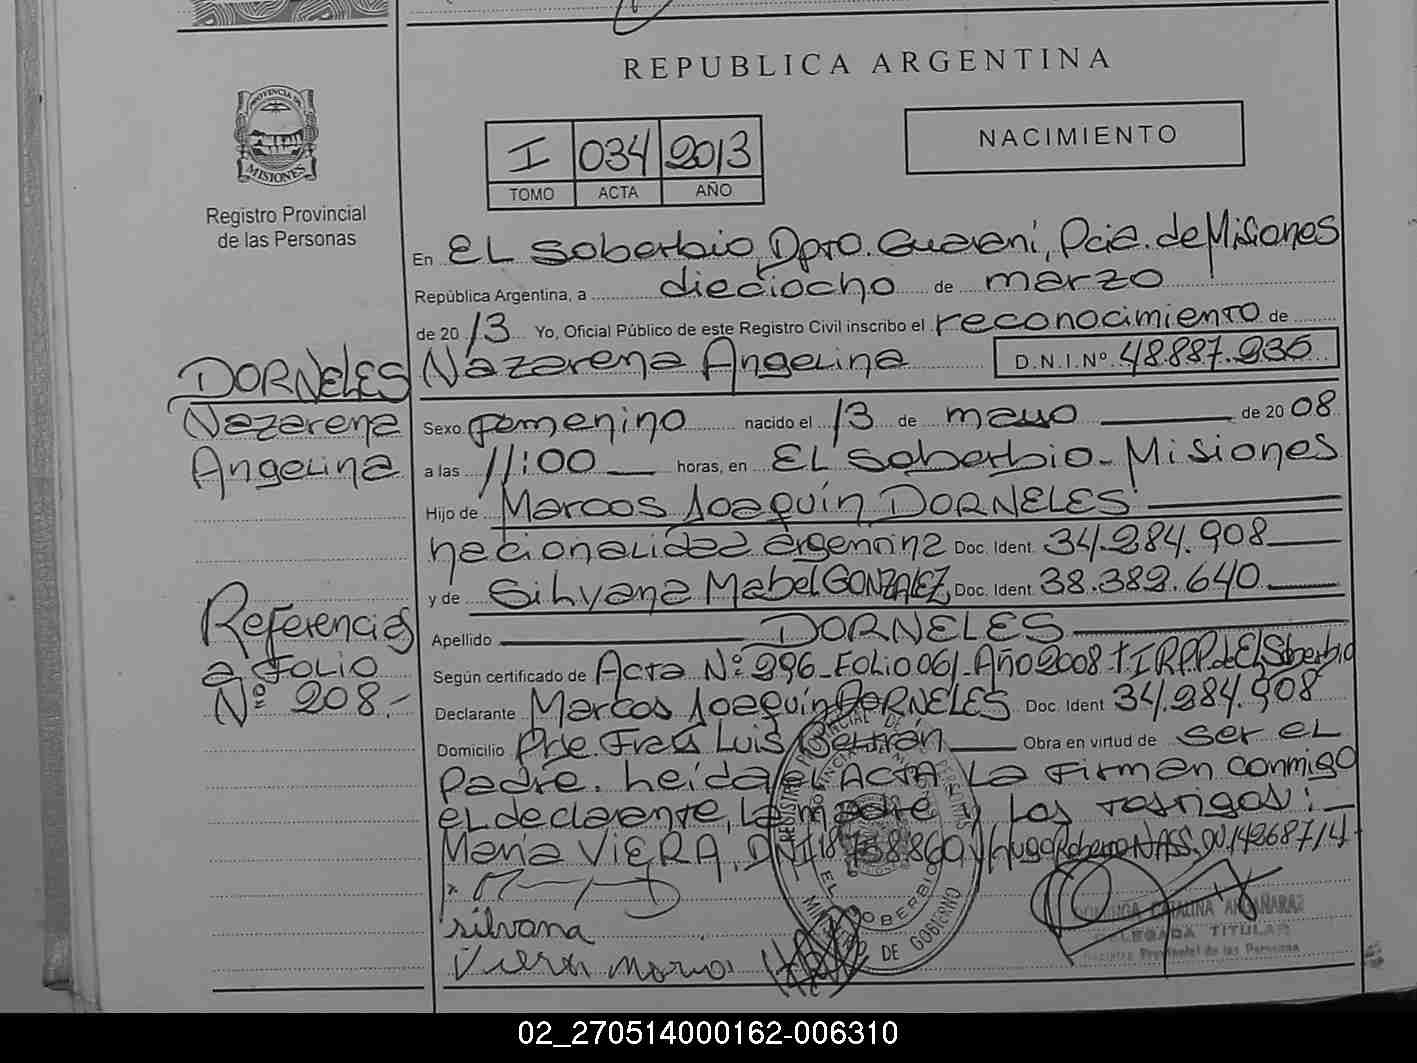 REPUBLICA ARGENTINA
PROVINCIA DE
MISIONES
Registro Provincial
de las Personas
I 034 2013
TOMO ACTA AÑO
NACIMIENTO
En EL Soberbio, Dpto. Guaraní, Pcia. de Misiones
República Argentina, a dieciocho de marzo
de 2013 Yo, Oficial Público de este Registro Civil inscribo el reconocimiento de
Nazarena Angelina D.N.I.Nº 48.887.235
DORNELES
Nazarena
Angelina
Sexo femenino nacido el 13 de mayo de 2008
a las 11:00 horas, en EL Soberbio - Misiones
Hijo de Marcos Joaquín DORNELES
nacionalidad argentina Doc. Ident. 34.284.908
y de Silvana Mabel GONZALEZ, Doc. Ident. 38.382.640
Apellido DORNELES
Según certificado de Acta Nº 296 - Folio 061 - Año 2008 T. I R.P.P. de El Soberbio
Referencias
a Folio
Nº 208.-
Declarante Marcos Joaquín DORNELES Doc. Ident 34.284.908
Domicilio Pje Fray Luis Beltrán Obra en virtud de ser el
padre. Leída el ACTA La Firman conmigo
el declarante, la madre y los testigos: -
Maria VIERA, DNI 18758860 y Hugo Roberto NASS.
silvana
Viera Maria
REGISTRO PROVINCIAL DE LAS PERSONAS
EL SOBERBIO
MINISTERIO DE GOBIERNO
DELEGADA TITULAR
Registro Provincial de las Personas
02_270514000162-006310